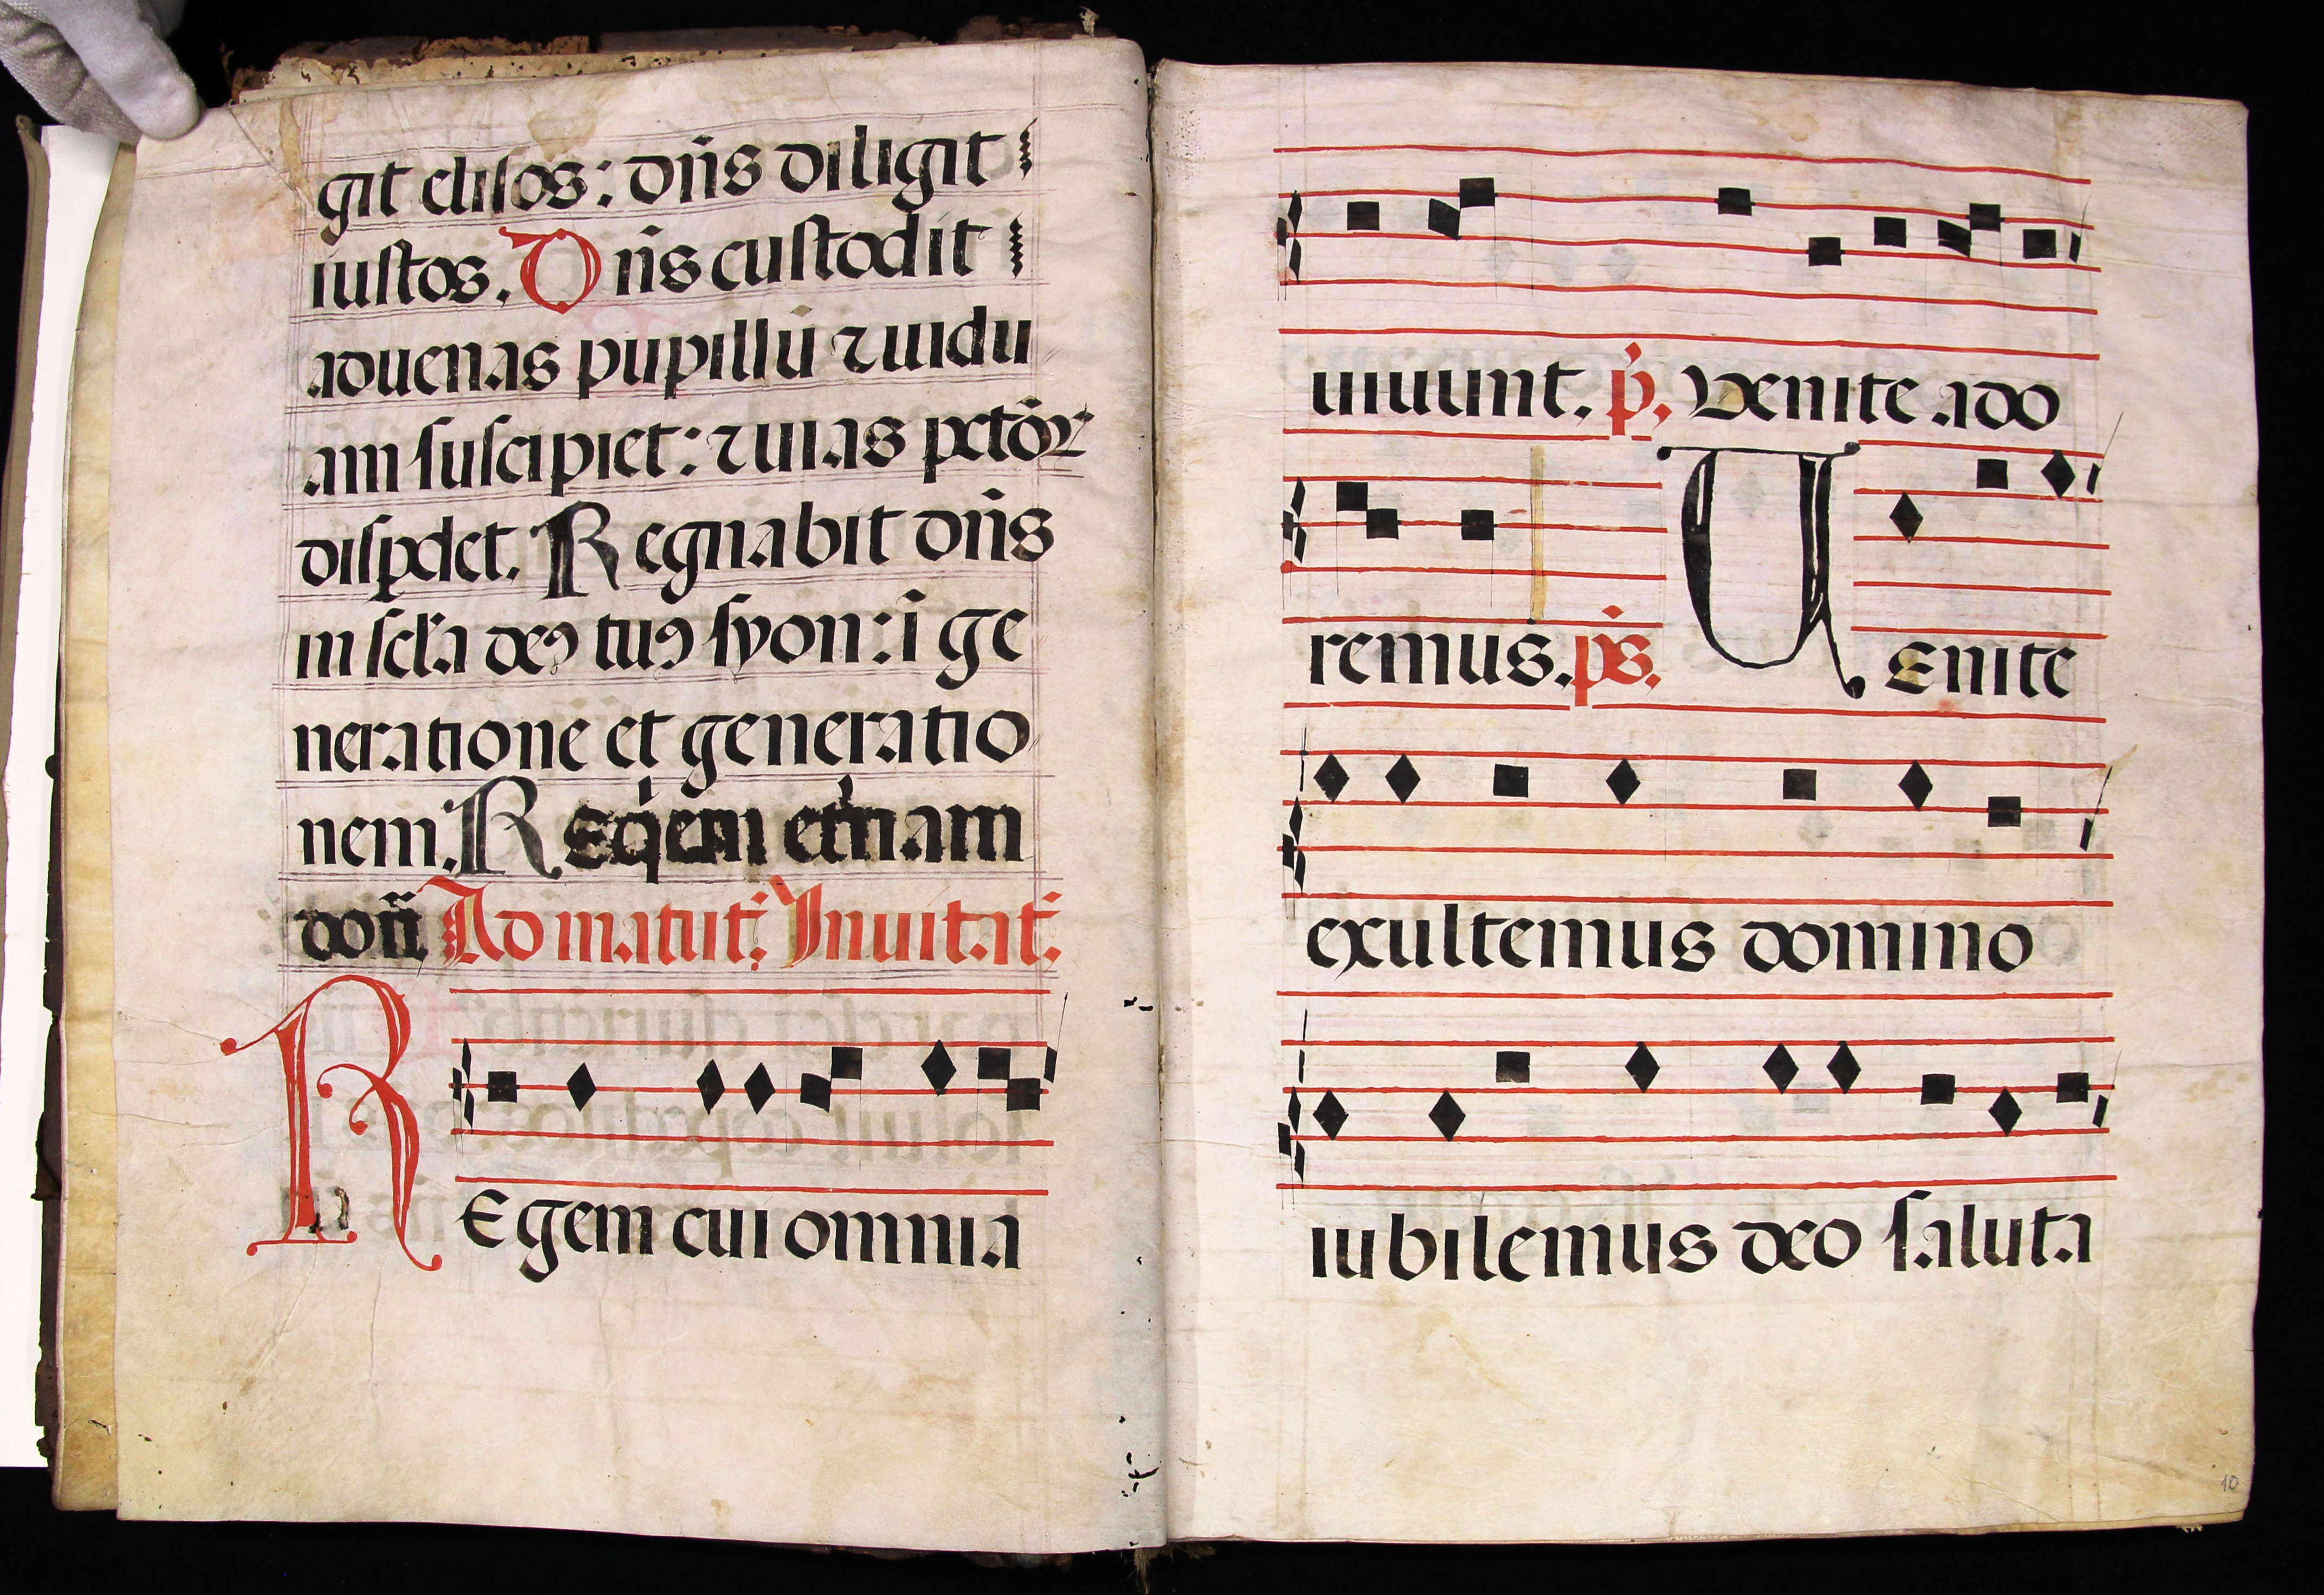 git elisos: dn̄s diligit
iustos. Dn̄s custodit
aduenas pupillū ⁊ uidu
am suscipiet: ⁊ uias pctōꝝ
dispdet. Regnabit dn̄s
in scl̄a deꝰ tuꝰ syon: ī ge
neratione et generatio
nem. Reqem etnam
don̄ Ad matut. Inuitat.
REgem cui omnia
uiuunt. p̄. Venite ado
remus. p̄s. VEnite
exultemus domino
iubilemus deo saluta
10